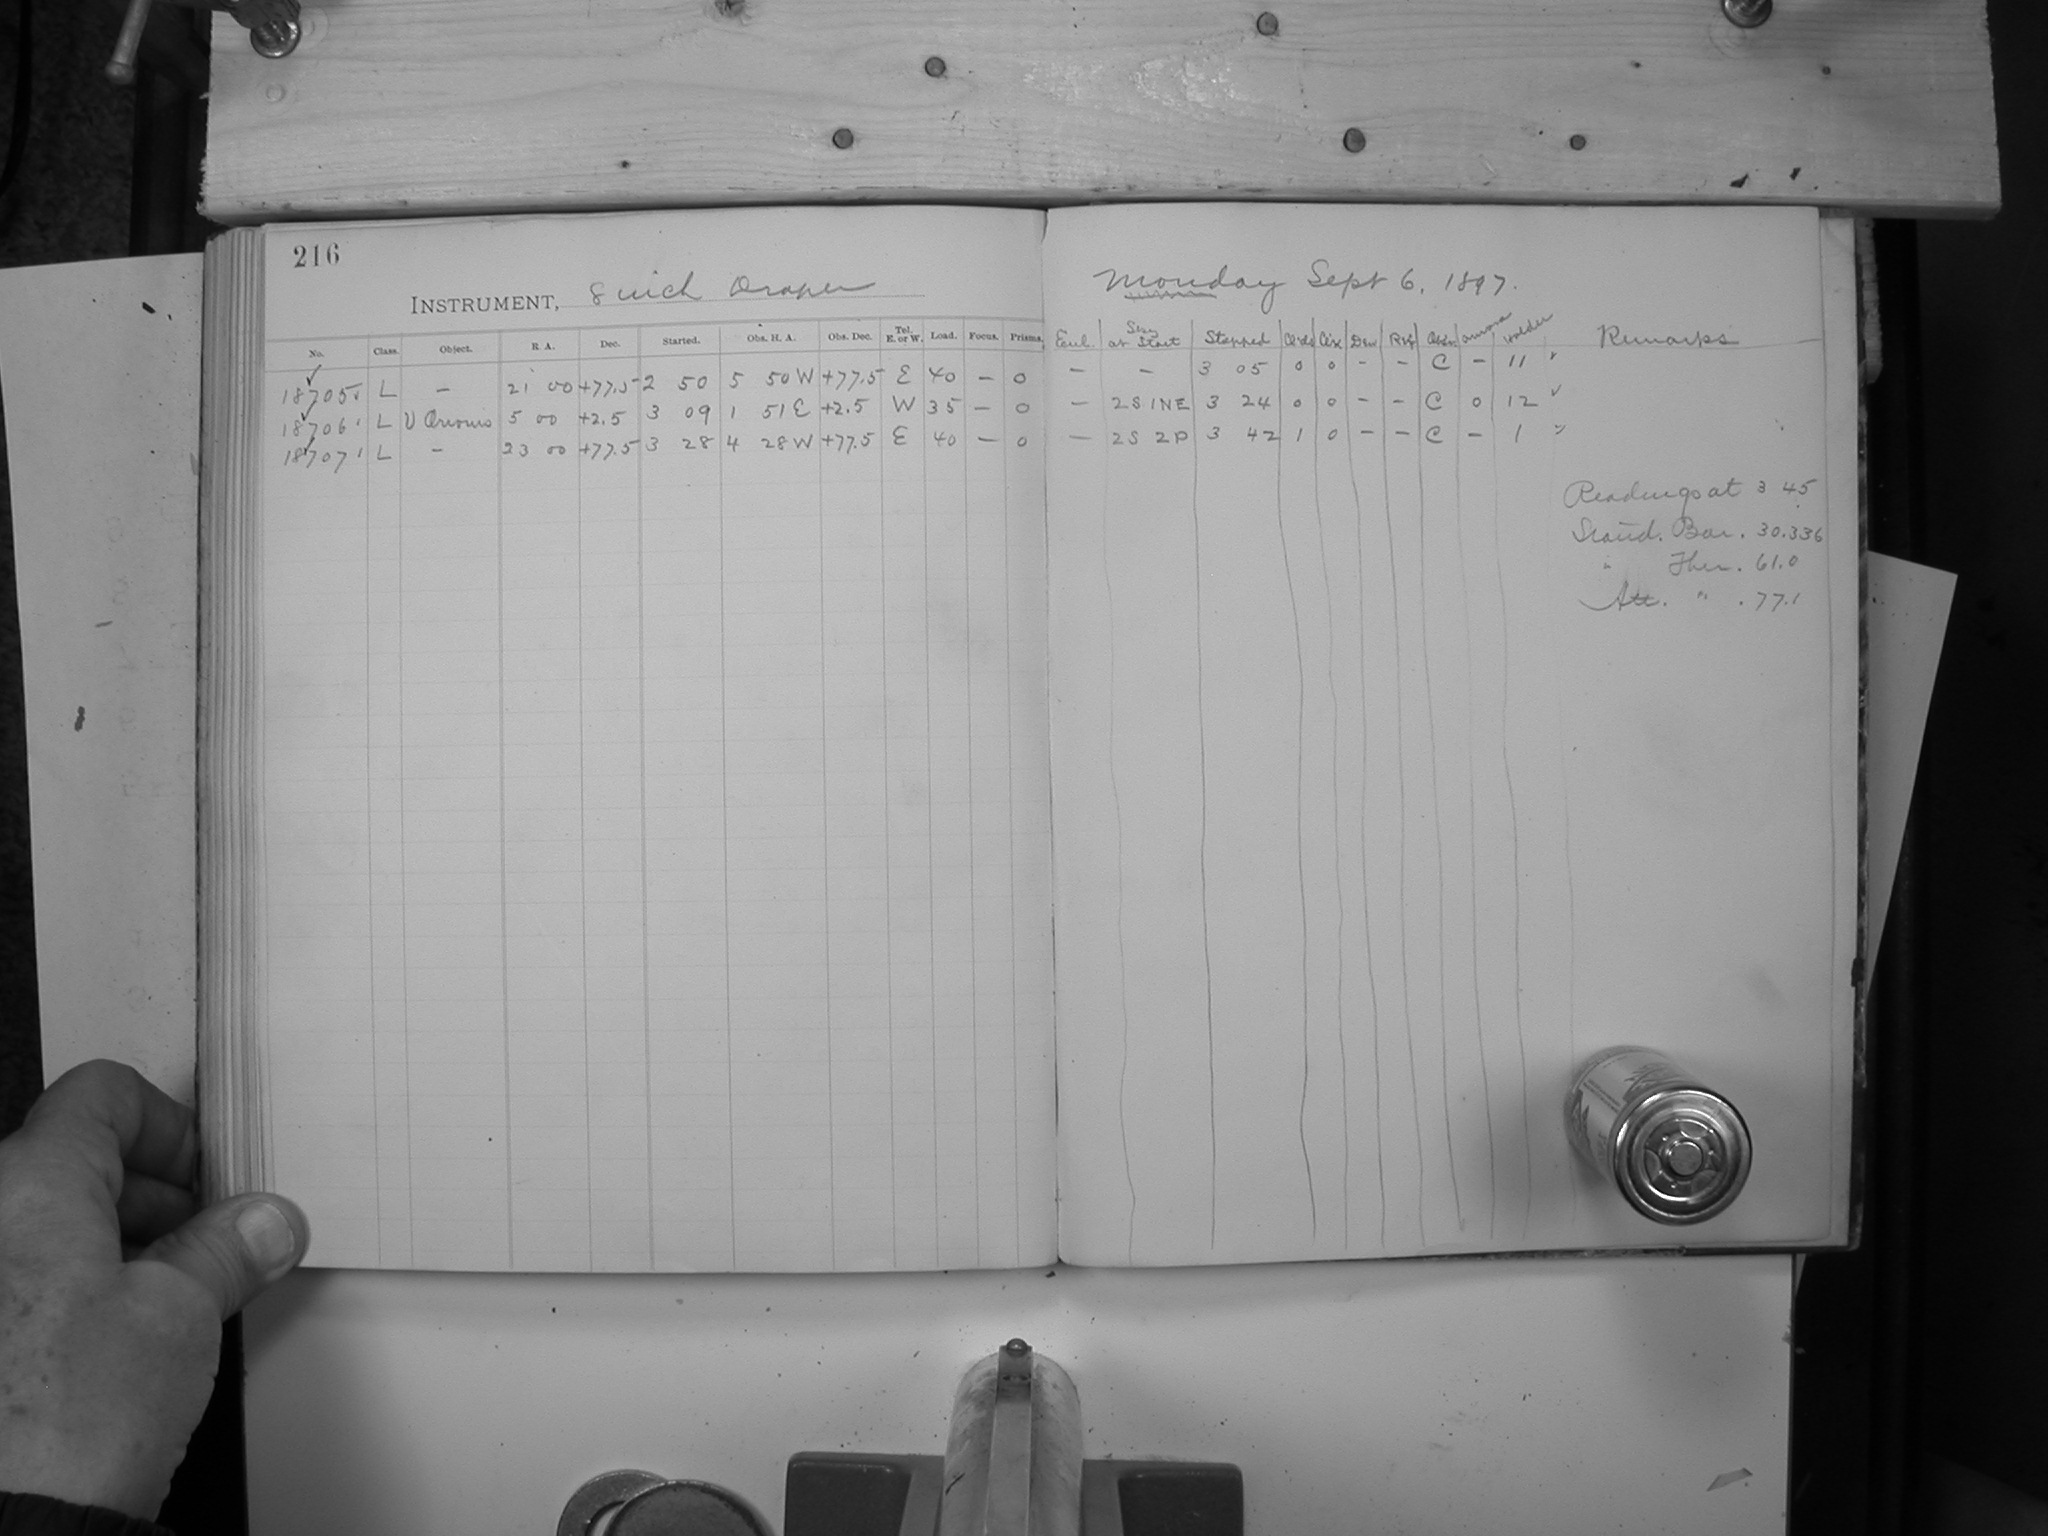 216
INSTRUMENT, 8 inch Draper
Monday Sept 6, 1897.
No. Class. Object. R. A. Dec. Started. Obs. H. A. Obs. Dec. Tel. E. or W. Load. Focus. Prisms. Sky at Start Stopped Remarks
18705 L — 21 00 +77.5 2 50 5 50 W +77.5 E 40 — 0 — — 3 05 0 0 - - C - 11
18706 L U Orionis 5 00 +2.5 3 09 1 51 E +2.5 W 35 — 0 — 2S 1NE 3 24 0 0 - - C 0 12
18707 L — 23 00 +77.5 3 28 4 28 W +77.5 E 40 — 0 — 2S 2P 3 42 1 0 - - C - 1
Readings at 3 45
Stand. Bar. 30.336
" Ther. 61.0
Att. " . 77.1